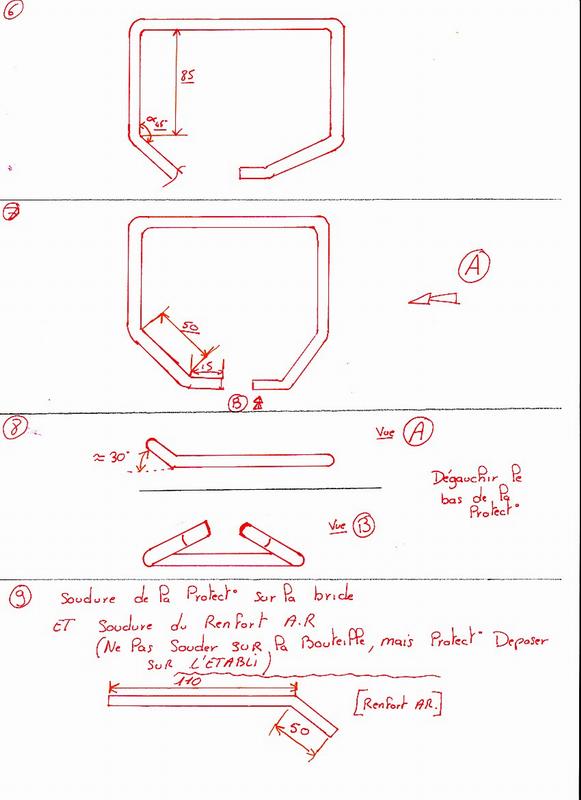 6
85
α 45°
7
A
50
15
B
8
Vue A
≈ 30°
Dégauchir le
bas de la
Protect°
Vue B
9 Soudure de la Protect° sur la bride
ET Soudure du Renfort A.R
(Ne Pas Souder SUR la Bouteille, mais Protect° Deposer
SUR L'ETABLI)
110
[Renfort AR.]
50